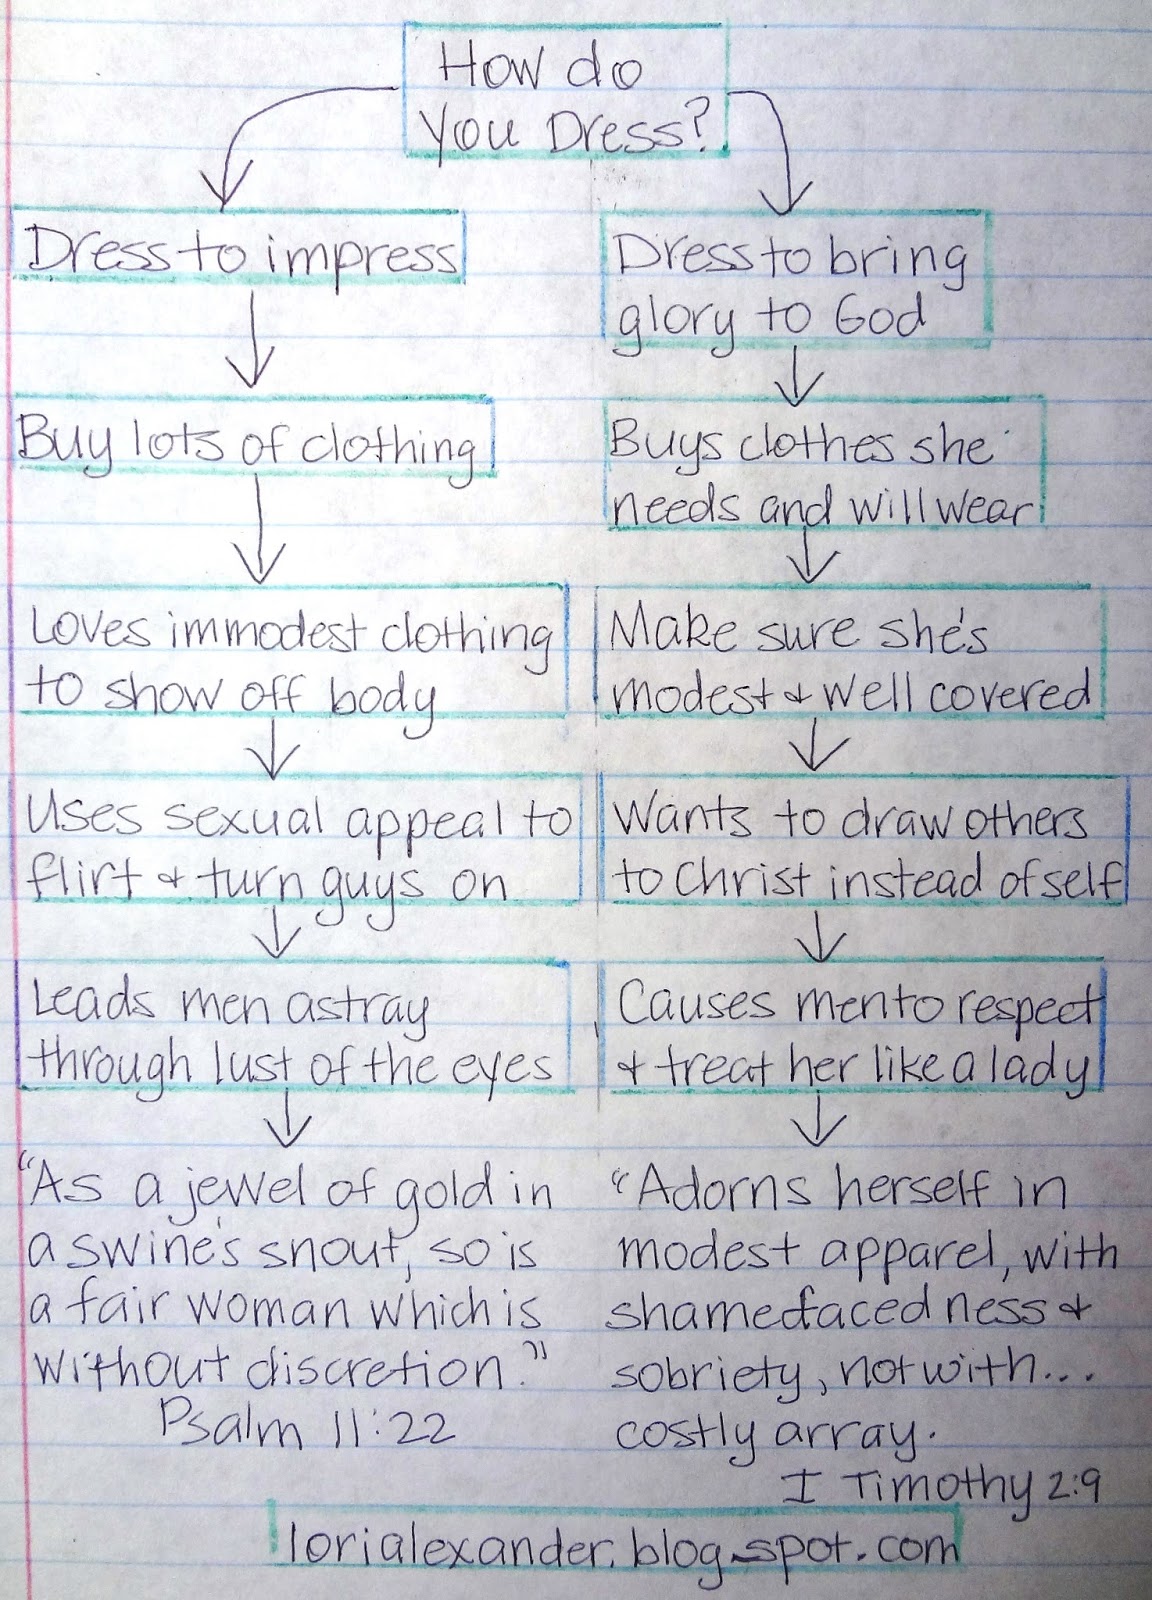 How do
You Dress?
Dress to impress
Buy lots of clothing
Loves immodest clothing
to show off body
Uses sexual appeal to
flirt & turn guys on
Leads men astray
through lust of the eyes
"As a jewel of gold in
a swine's snout, so is
a fair woman which is
without discretion."
Psalm 11:22
Dress to bring
glory to God
Buys clothes she
needs and will wear
Make sure she's
modest & well covered
Wants to draw others
to Christ instead of self
Causes men to respect
& treat her like a lady
"Adorns herself in
modest apparel, with
shamefacedness &
sobriety, not with...
costly array.
I Timothy 2:9
lorialexander.blogspot.com